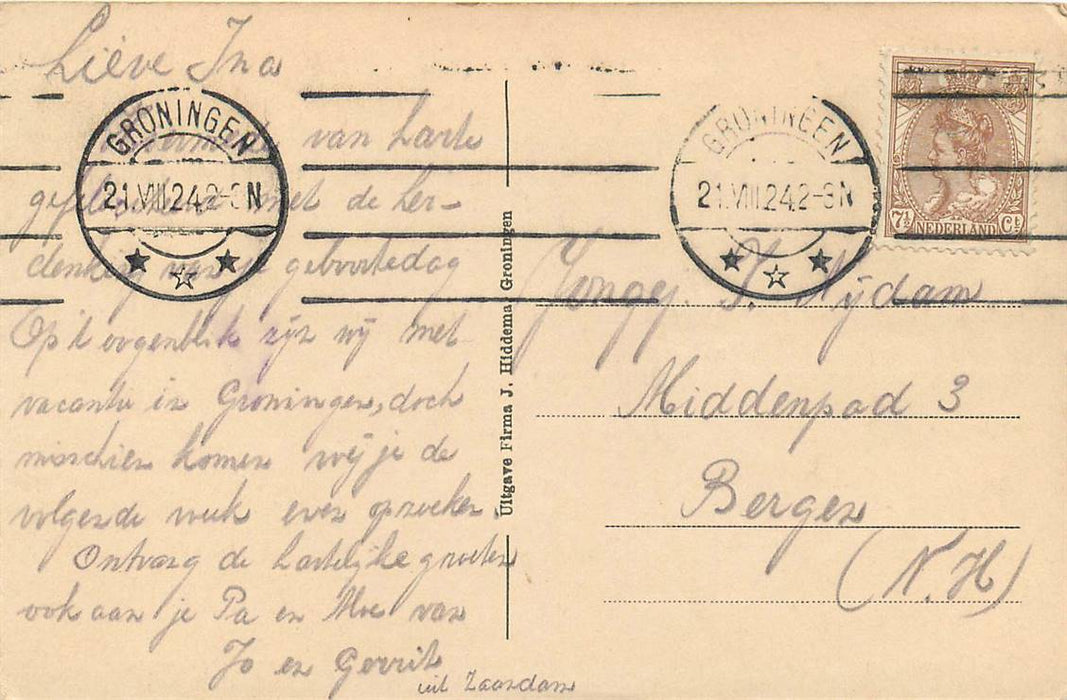 Lieve Ina
van harte
gefeliciteerd met de her-
denking van je geboortedag
Op't oogenblik zijn wij met
vacantie in Groningen, doch
misschien komen wij je de
volgende week even opzoeken.
Ontvang de hartelijke groeten
ook aan je Pa en Moe van
Jo en Gerrit
uit Zaandam
GRONINGEN
21.VIII.24.2-3N
Uitgave Firma J. Hiddema Groningen
GRONINGEN
21.VIII.24.2-3N
7½ NEDERLAND Ct
Jongej. Nijdam
Middenpad 3
Bergen
(N.H)